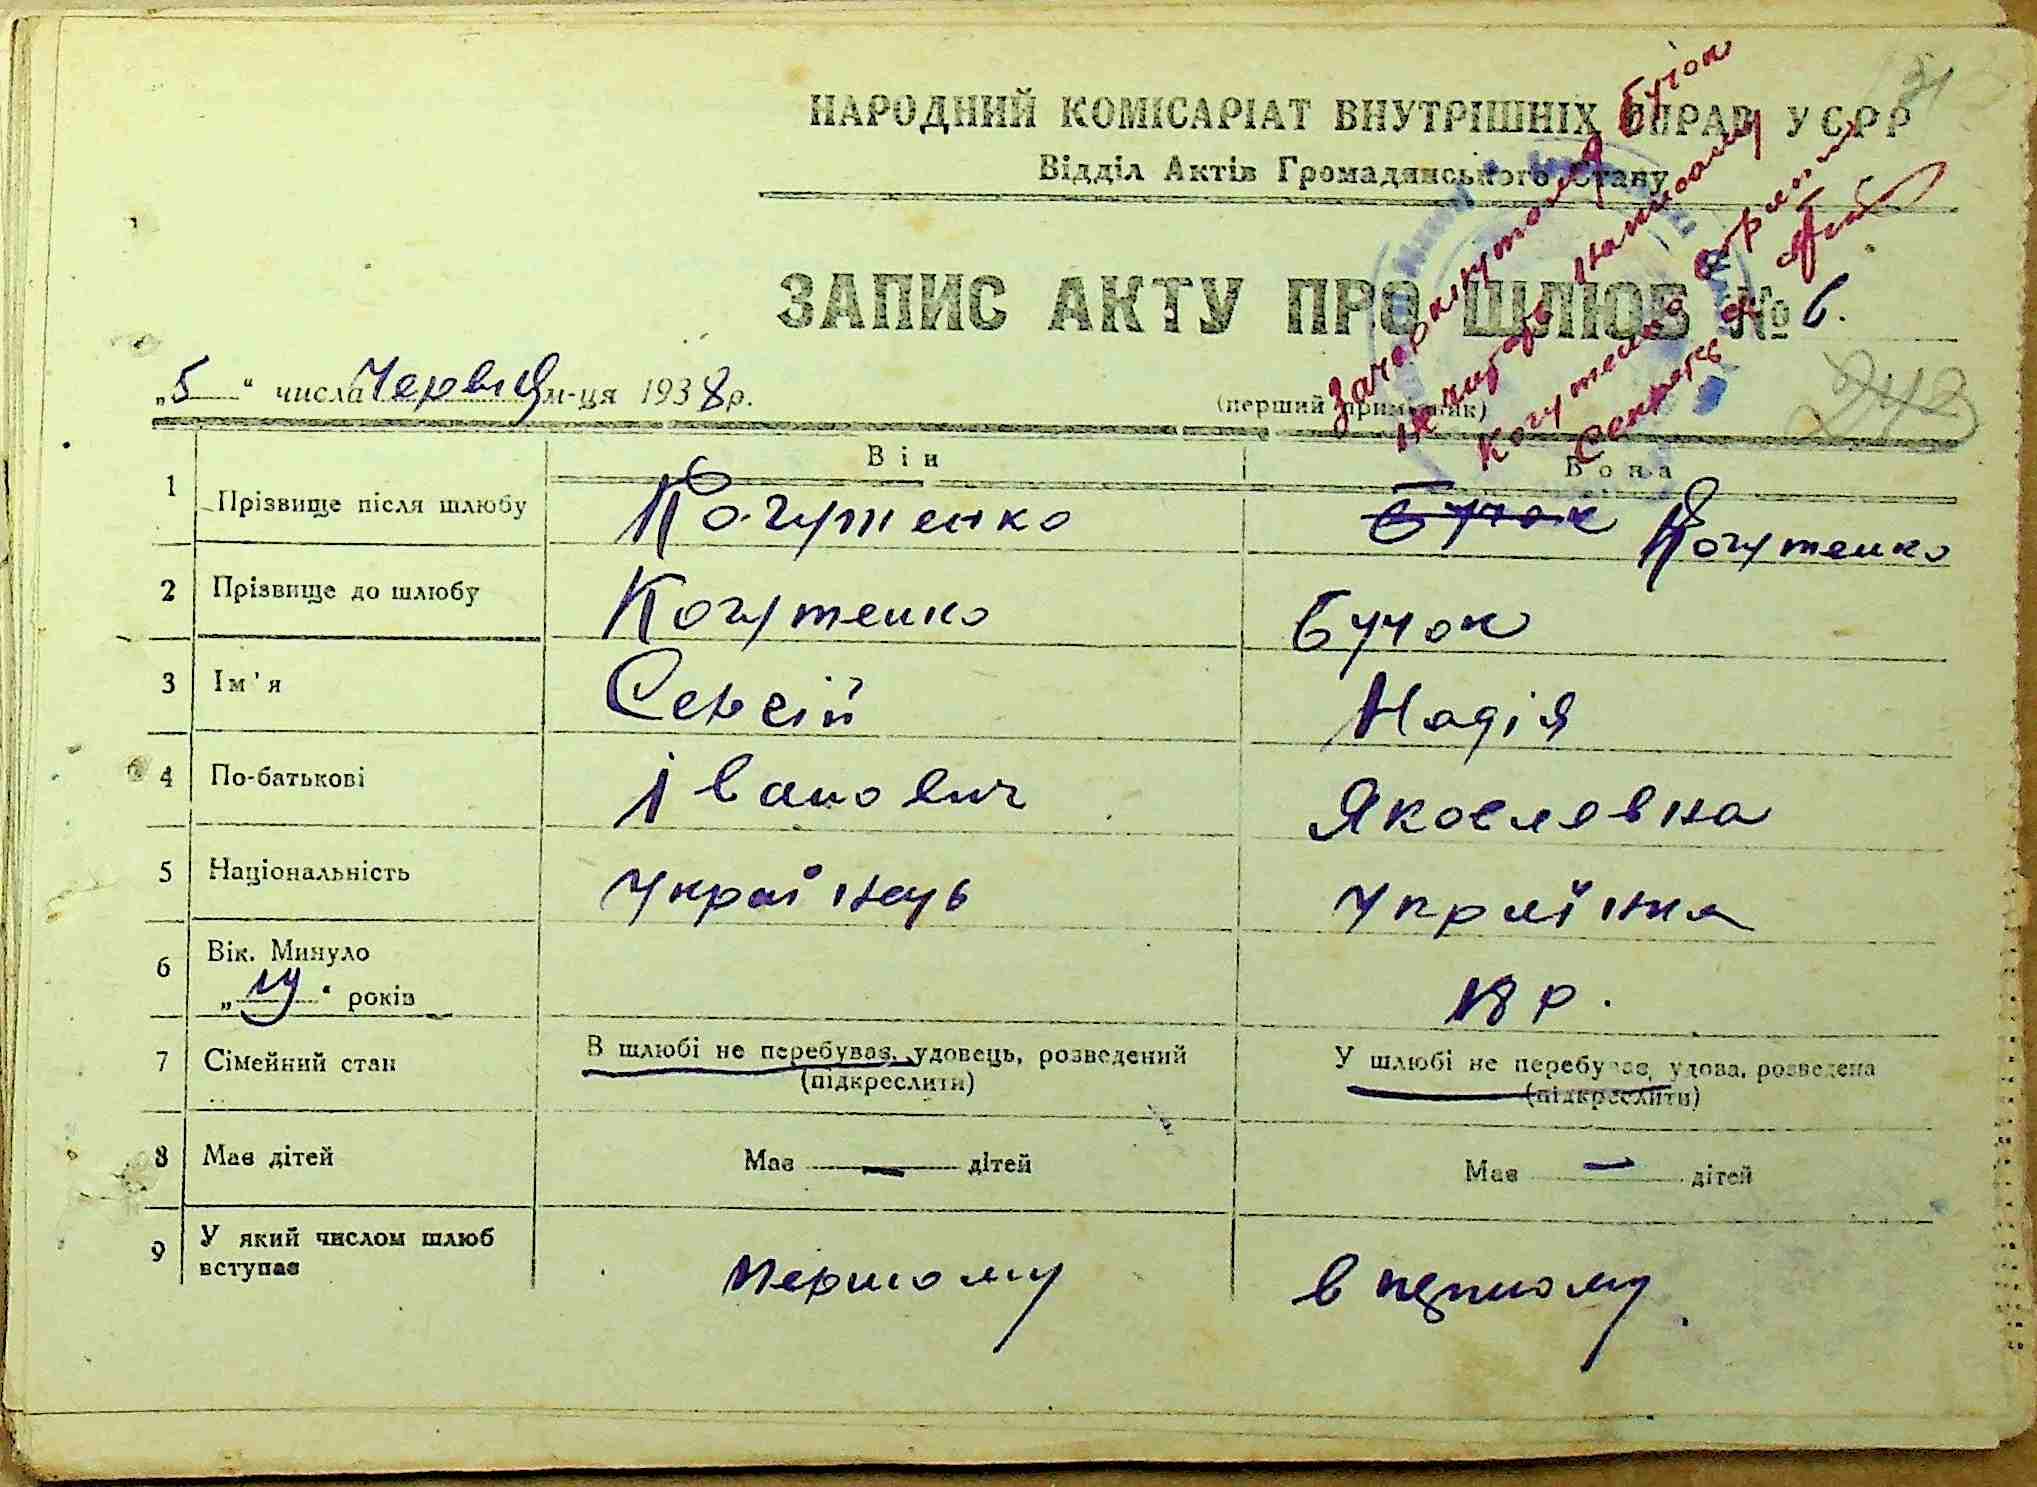 31
НАРОДНИЙ КОМІСАРІАТ ВНУТРІШНІХ СПРАВ УСРР
Відділ Актів Громадянського Стану
ЗАПИС АКТУ ПРО ШЛЮБ № 6.
„5“ числа Червня м-ця 1938 р.
(перший примірник)
243
Закреслутому Бучок
Когутенко вірити
Секретар
Він Вона
1 Прізвище після шлюбу Когутенко Бучок Когутенко
2 Прізвище до шлюбу Когутенко Бучок
3 Ім'я Сергій Надія
4 По-батькові Іванович Яковлевна
5 Національність Українець Українка
6 Вік. Минуло
„19“ років 18 р.
7 Сімейний стан В шлюбі не перебував, удовець, розведений У шлюбі не перебуває, удова, розведена
(підкреслити) (підкреслити)
8 Має дітей Має — дітей Має — дітей
9 У який числом шлюб
вступає першому в першому